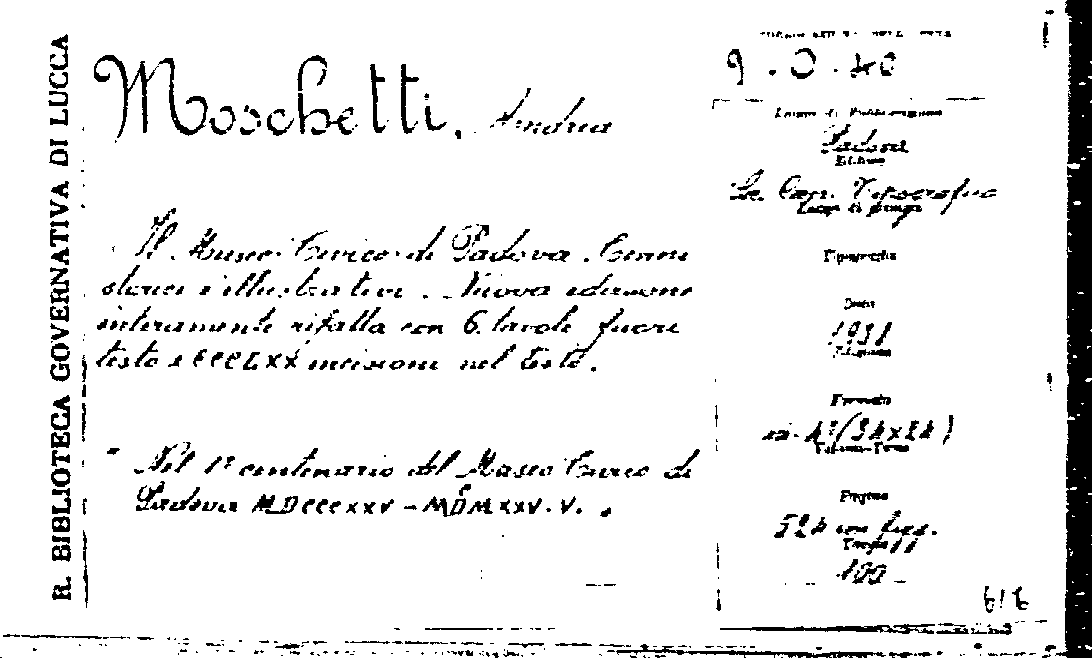 R. BIBLIOTECA GOVERNATIVA DI LUCCA
Moschetti, Andrea
Il Museo Civico di Padova. Cenni
storici e illustrativi. Nuova edizione
interamente rifatta con 6 tavole fuori
testo e CCCLXX incisioni nel testo.
" Nel 1º centenario del Museo Civico di
Padova MDCCCXXV - MDMXXV. V.
9.0.40
Luogo di Pubblicazione
Padova
Editore
Soc. Coop. Tipografica
Luogo di stampa
Tipografia
Data
Formato
in-4º (34x24)
Pagine
524 con figg.
100
616